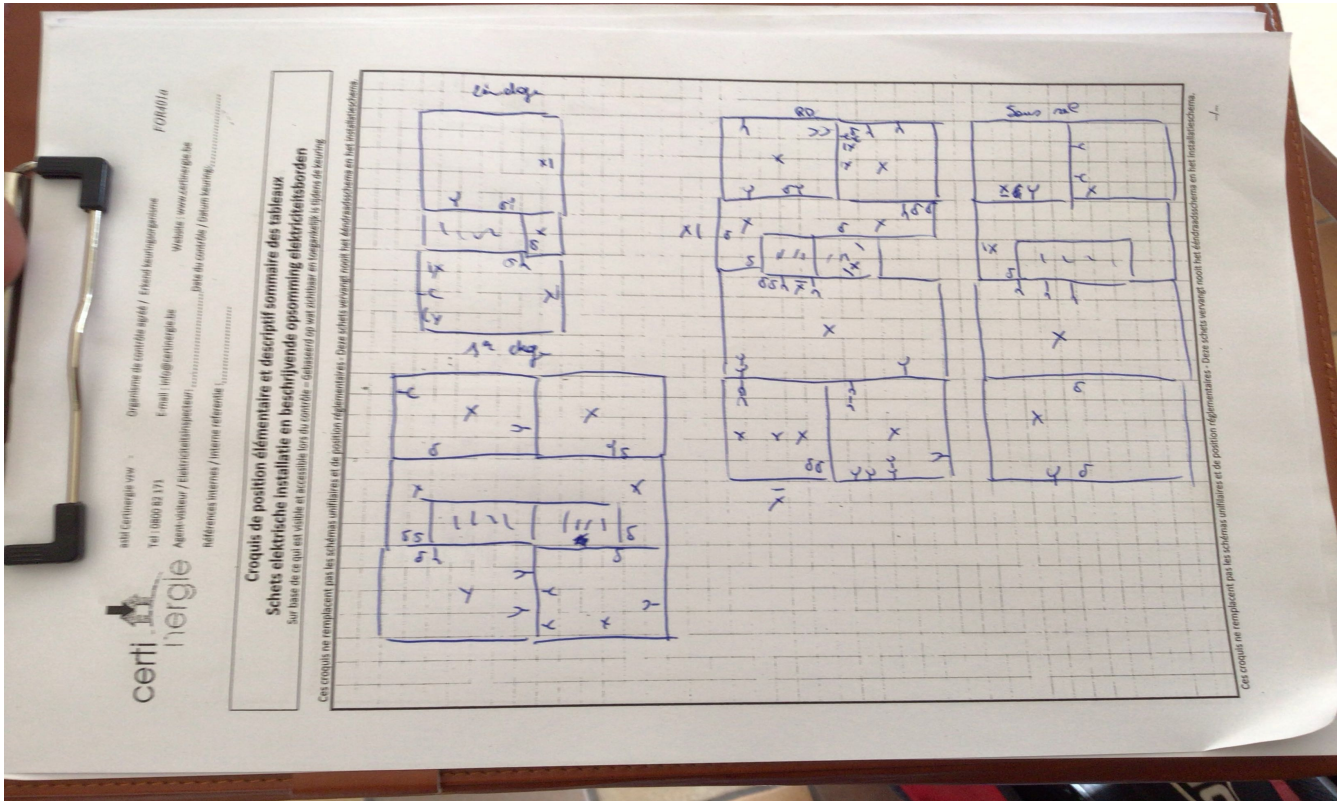 certinergie
asbl Certinergie vzw Organisme de contrôle agréé / Erkend keuringsorganisme FOR401a
Tel : 0800 82 171 E-mail : info@certinergie.be Website : www.certinergie.be
Agent-visiteur / Elektriciteitsinspecteur: Date du contrôle / Datum keuring:
Références internes / Interne referentie :
Croquis de position élémentaire et descriptif sommaire des tableaux
Schets elektrische installatie en beschrijvende opsomming elektriciteitsborden
Sur base de ce qui est visible et accessible lors du contrôle – Gebaseerd op wat zichtbaar en toegankelijk is tijdens de keuring
Ces croquis ne remplacent pas les schémas unifilaires et de position réglementaires - Deze schets vervangt nooit het ééndraadsschema en het installatieschema.
RD
Sous sol
Ces croquis ne remplacent pas les schémas unifilaires et de position réglementaires - Deze schets vervangt nooit het ééndraadsschema en het installatieschema.